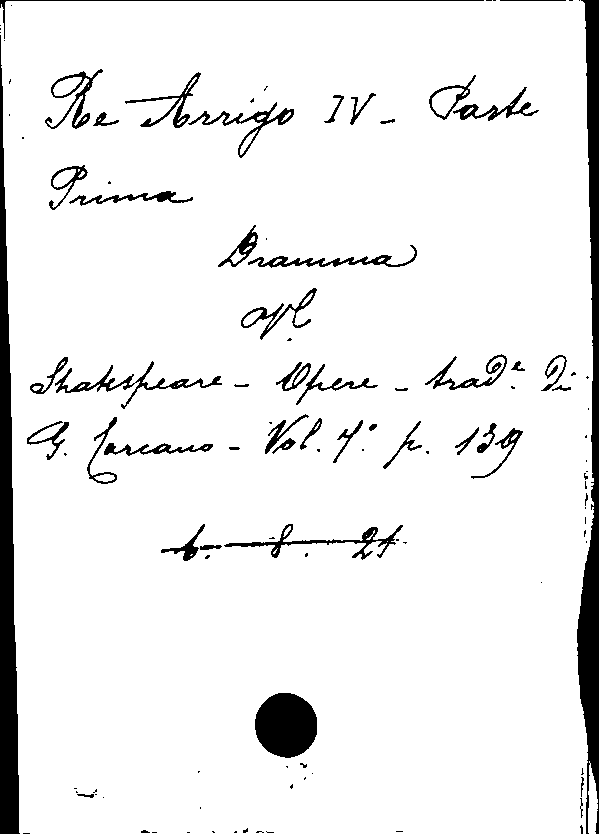 Re Arrigo IV - Parte
Prima
Dramma
Shakespeare - Opere - trad.e di
G. Carcano - Vol. 7.° p. 139
6. 8. 21